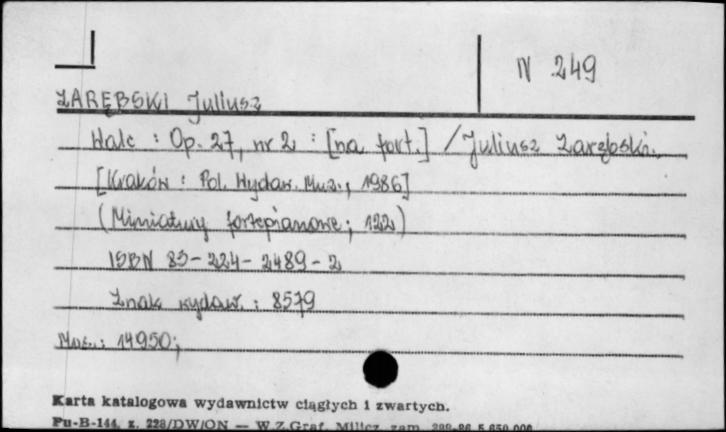 N 249
ZARĘBSKI Juliusz
Walc : Op. 27, nr 2 : [na fort.] / Juliusz Zarębski.
[Kraków : Pol. Wydaw. Muz., 1986]
(Miniatury fortepianowe ; 122)
ISBN 83-224-2489-2
Znak wydaw. : 8579
Muz.: 14950;
Karta katalogowa wydawnictw ciągłych i zwartych.
Pu-B-144, z. 228/DW/ON — W.Z.Graf. Milicz, zam.